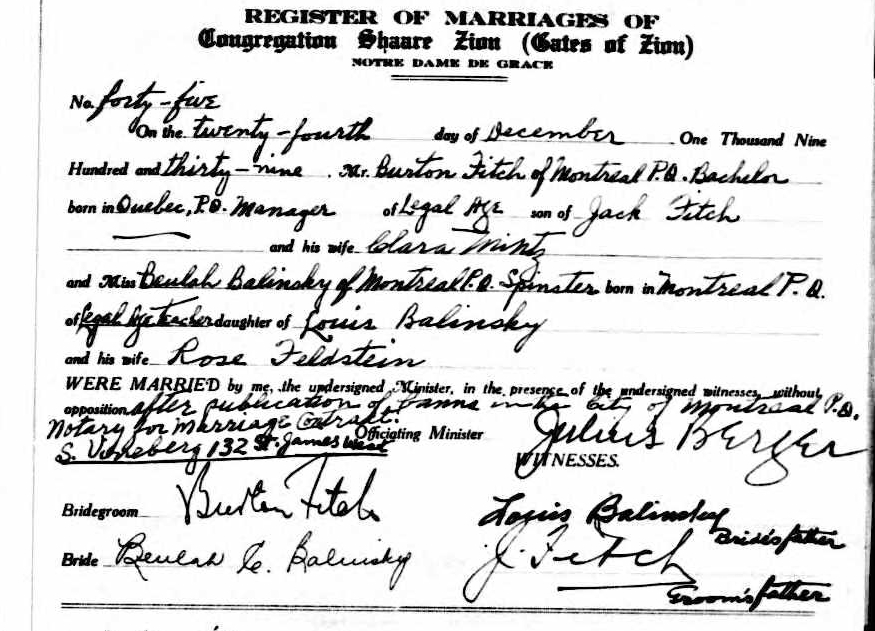 REGISTER OF MARRIAGES OF
Congregation Shaare Zion (Gates of Zion)
NOTRE DAME DE GRACE
No. forty-five
On the twenty-fourth day of December. One Thousand Nine
Hundred and thirty-nine. Mr. Burton Fitch of Montreal P.Q. Bachelor
born in Quebec, P.Q. Manager of Legal Age son of Jack Fitch
and his wife Clara Mintz
and Miss Beulah Balinsky of Montreal P.Q. Spinster born in Montreal P.Q.
of Legal Age teacher daughter of Louis Balinsky
and his wife Rose Feldstein
WERE MARRIED by me, the undersigned Minister, in the presence of the undersigned witnesses, without
opposition after publication of banns in the City of Montreal P.Q.
Notary for Marriage Contract.
S. Vineberg 132 St. James West
Officiating Minister Julius Berger
WITNESSES.
Bridegroom Burton Fitch Louis Balinsky
Bride's father
Bride Beulah C. Balinsky J. Fitch
Groom's father